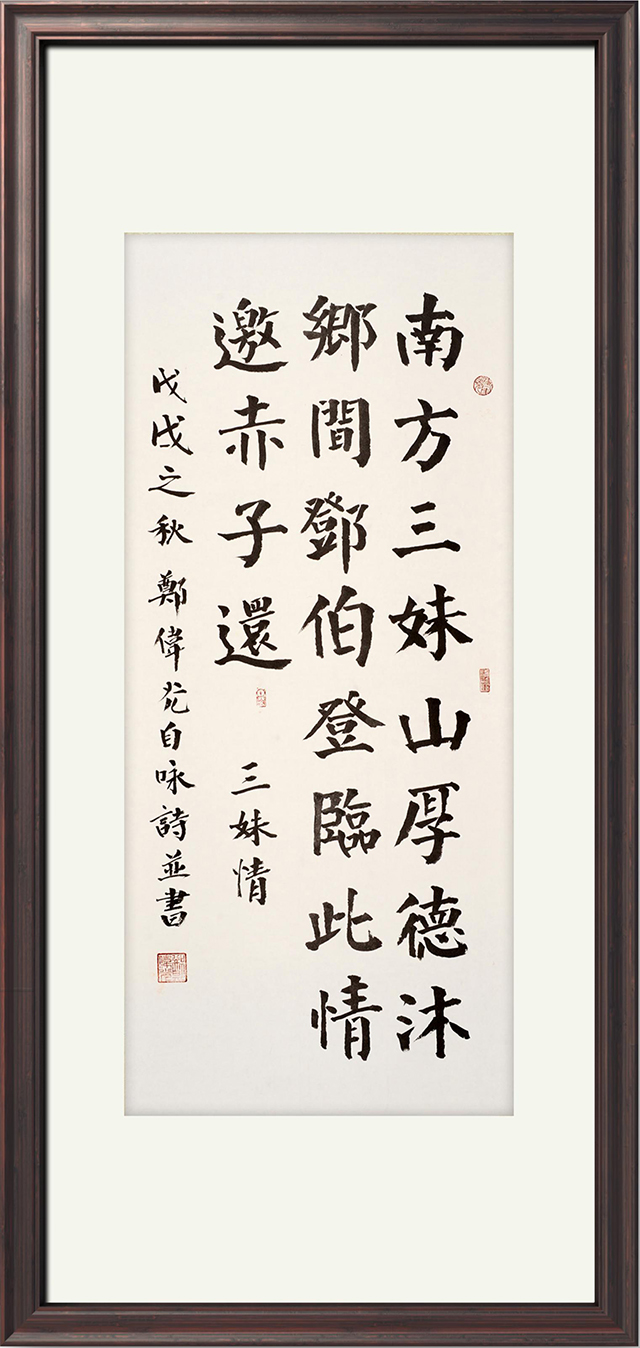 南方三妹山厚德沐
鄉間鄧伯登臨此情
邀赤子還
三妹情
戊戌之秋 鄭偉 自咏詩並書